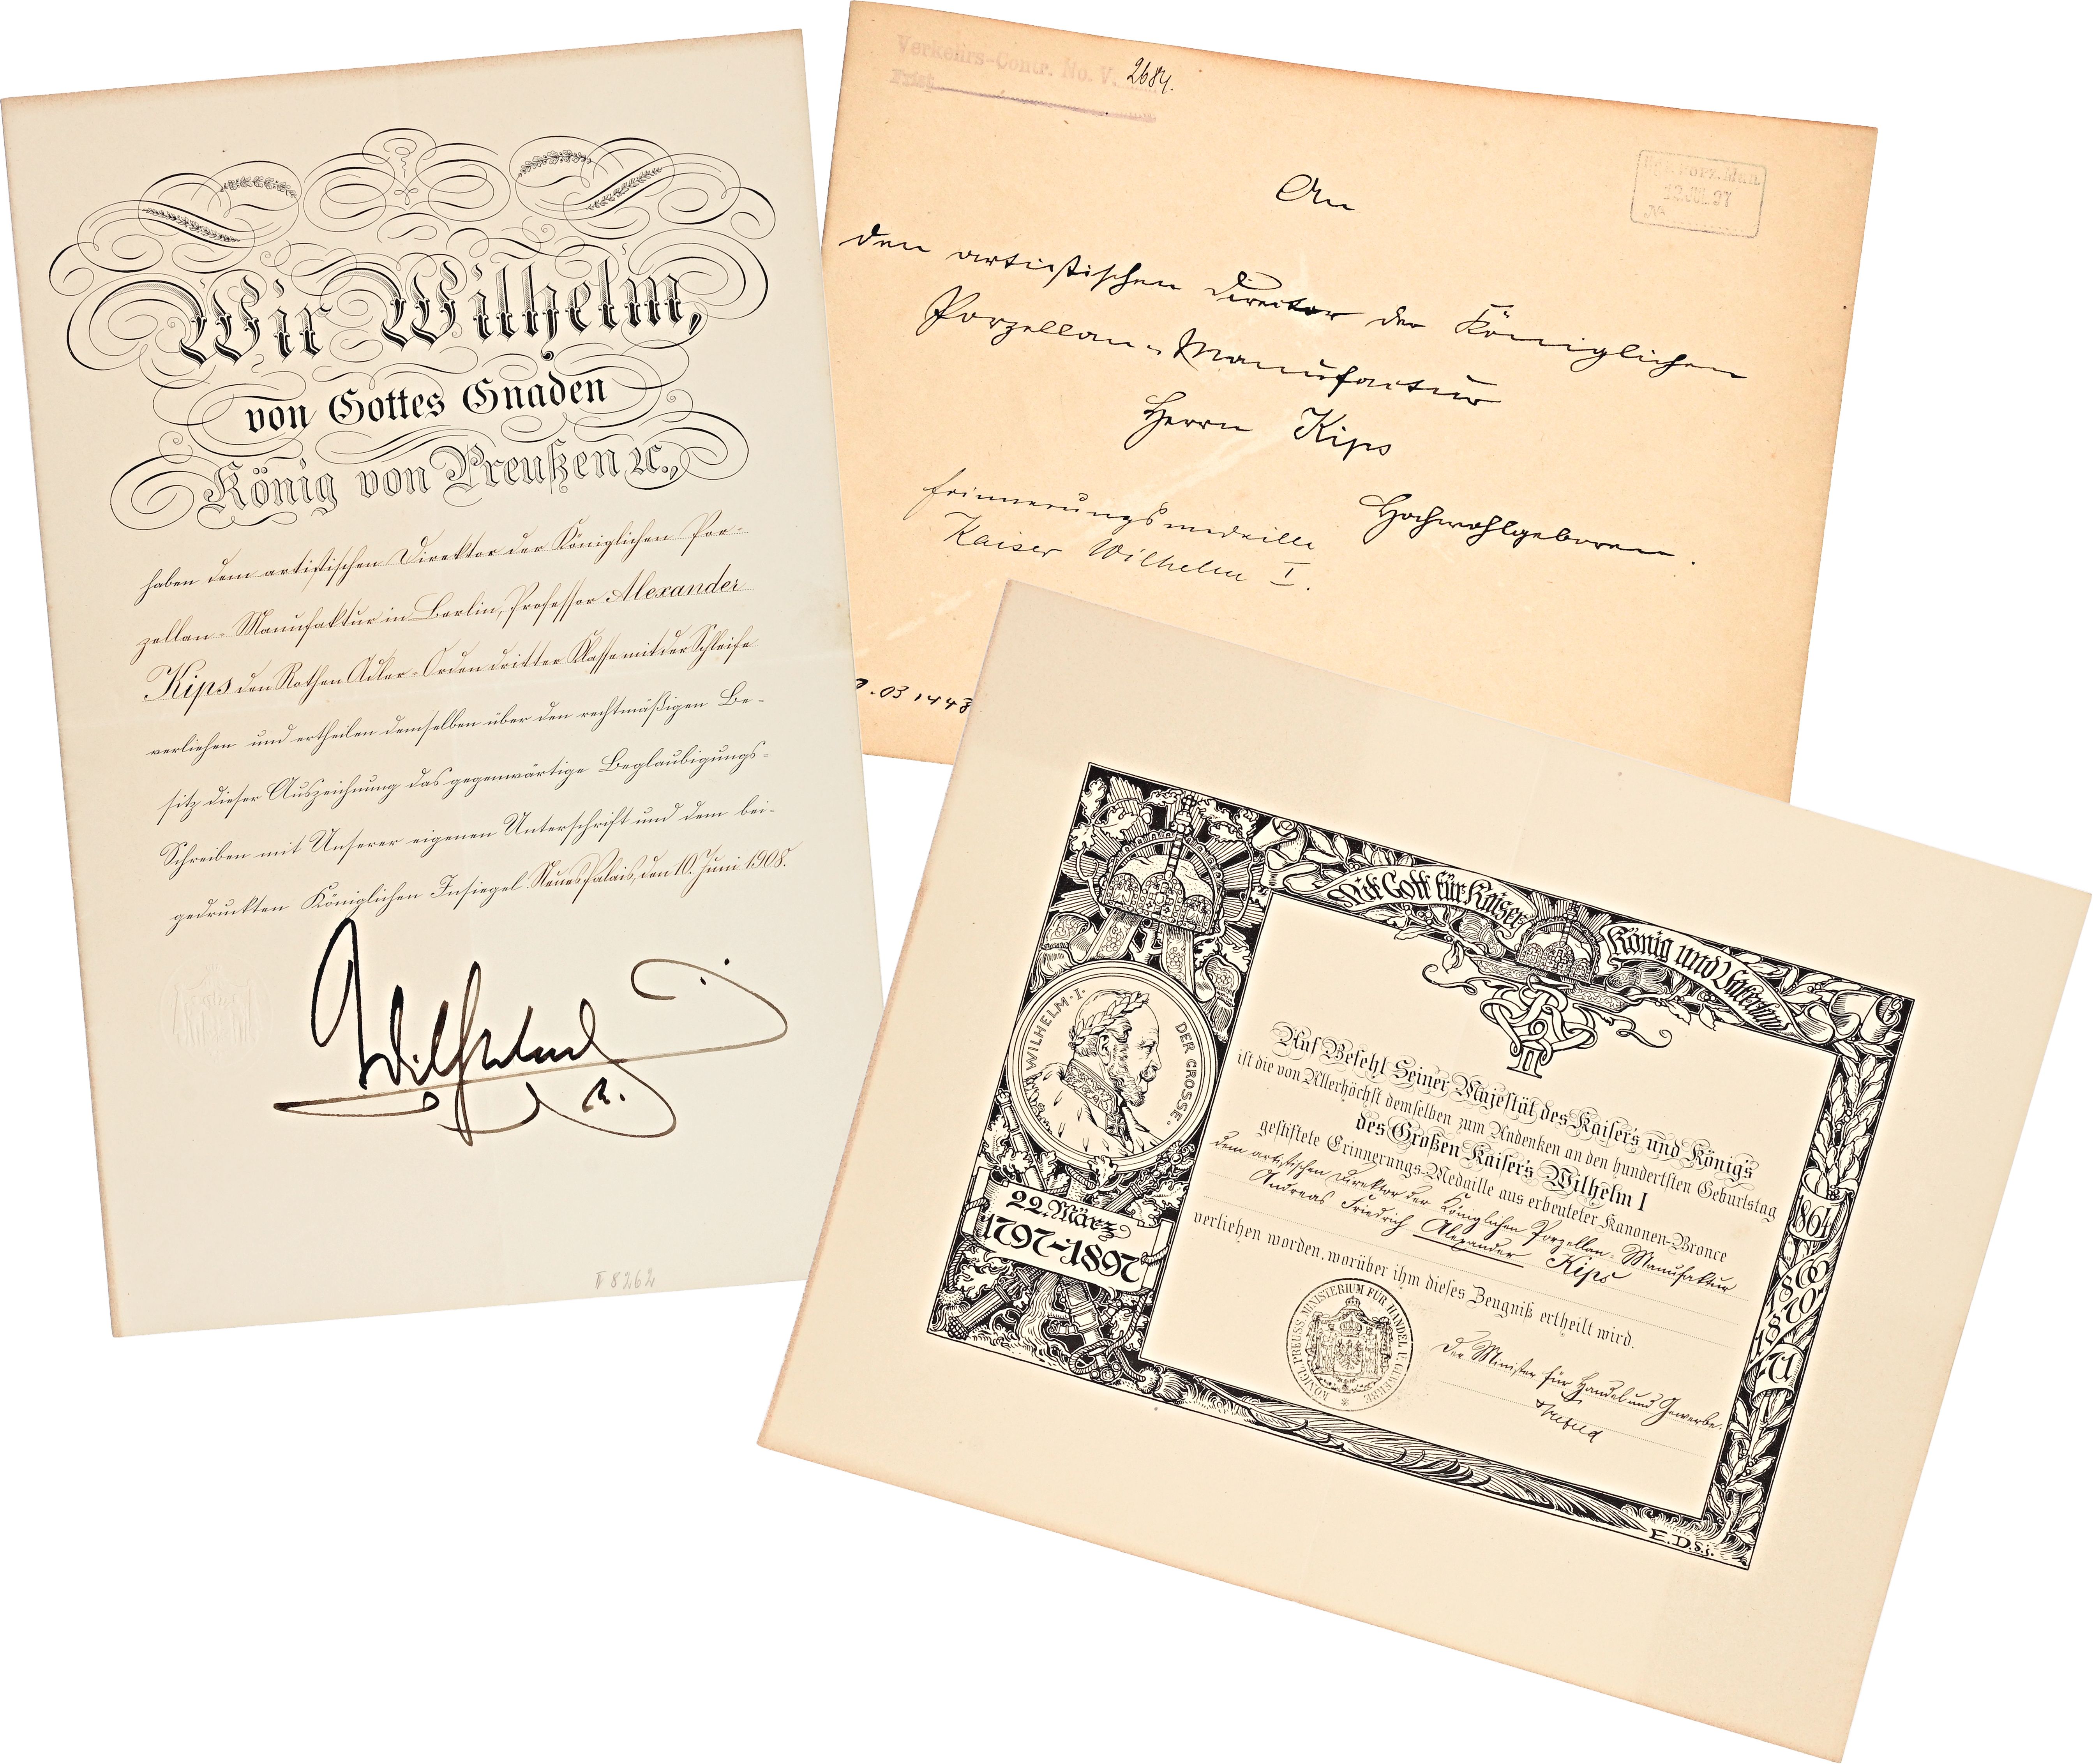 Wir Wilhelm,
von Gottes Gnaden
König von Preußen ꝛc.,
haben dem artistischen Direktor der Königlichen Por-
zellan-Manufaktur in Berlin, Professor Alexander
Kips den Rothen Adler-Orden dritter Klasse mit der Schleife
verliehen und ertheilen demselben über den rechtmäßigen Be-
sitz dieser Auszeichnung das gegenwärtige Beglaubigungs-
Schreiben mit Unserer eigenen Unterschrift und dem bei-
gedruckten Königlichen Insiegel. Neues Palais, den 10. Juni 1908.
Wilhelm
R.
8262
Verkehrs-Contr. No. V. 2684.
Frist
Kgl. Porz. Man.
12. JUL. 97
No
An
den artistischen Director der Königlichen
Porzellan-Manufactur
Herrn Kips
Hochwohlgeboren.
Erinnerungsmedaille
Kaiser Wilhelm I.
03 1448
Mit Gott für Kaiser König und Vaterland
WILHELM·I· DER GROSSE·
22. März
1797-1897
Auf Befehl Seiner Majestät des Kaisers und Königs
ist die von Allerhöchst demselben zum Andenken an den hundertsten Geburtstag
des Großen Kaisers Wilhelm I
gestiftete Erinnerungs-Medaille aus erbeuteter Kanonen-Bronce
dem artistischen Direktor der Königlichen Porzellan-Manufaktur
Andreas Friedrich Alexander Kips
verliehen worden, worüber ihm dieses Zeugniß ertheilt wird.
KÖNIGL. PREUSS. MINISTERIUM FÜR HANDEL U. GEWERBE
Der Minister für Handel und Gewerbe.
1864
1866
1870
1871
E.D.d.j.